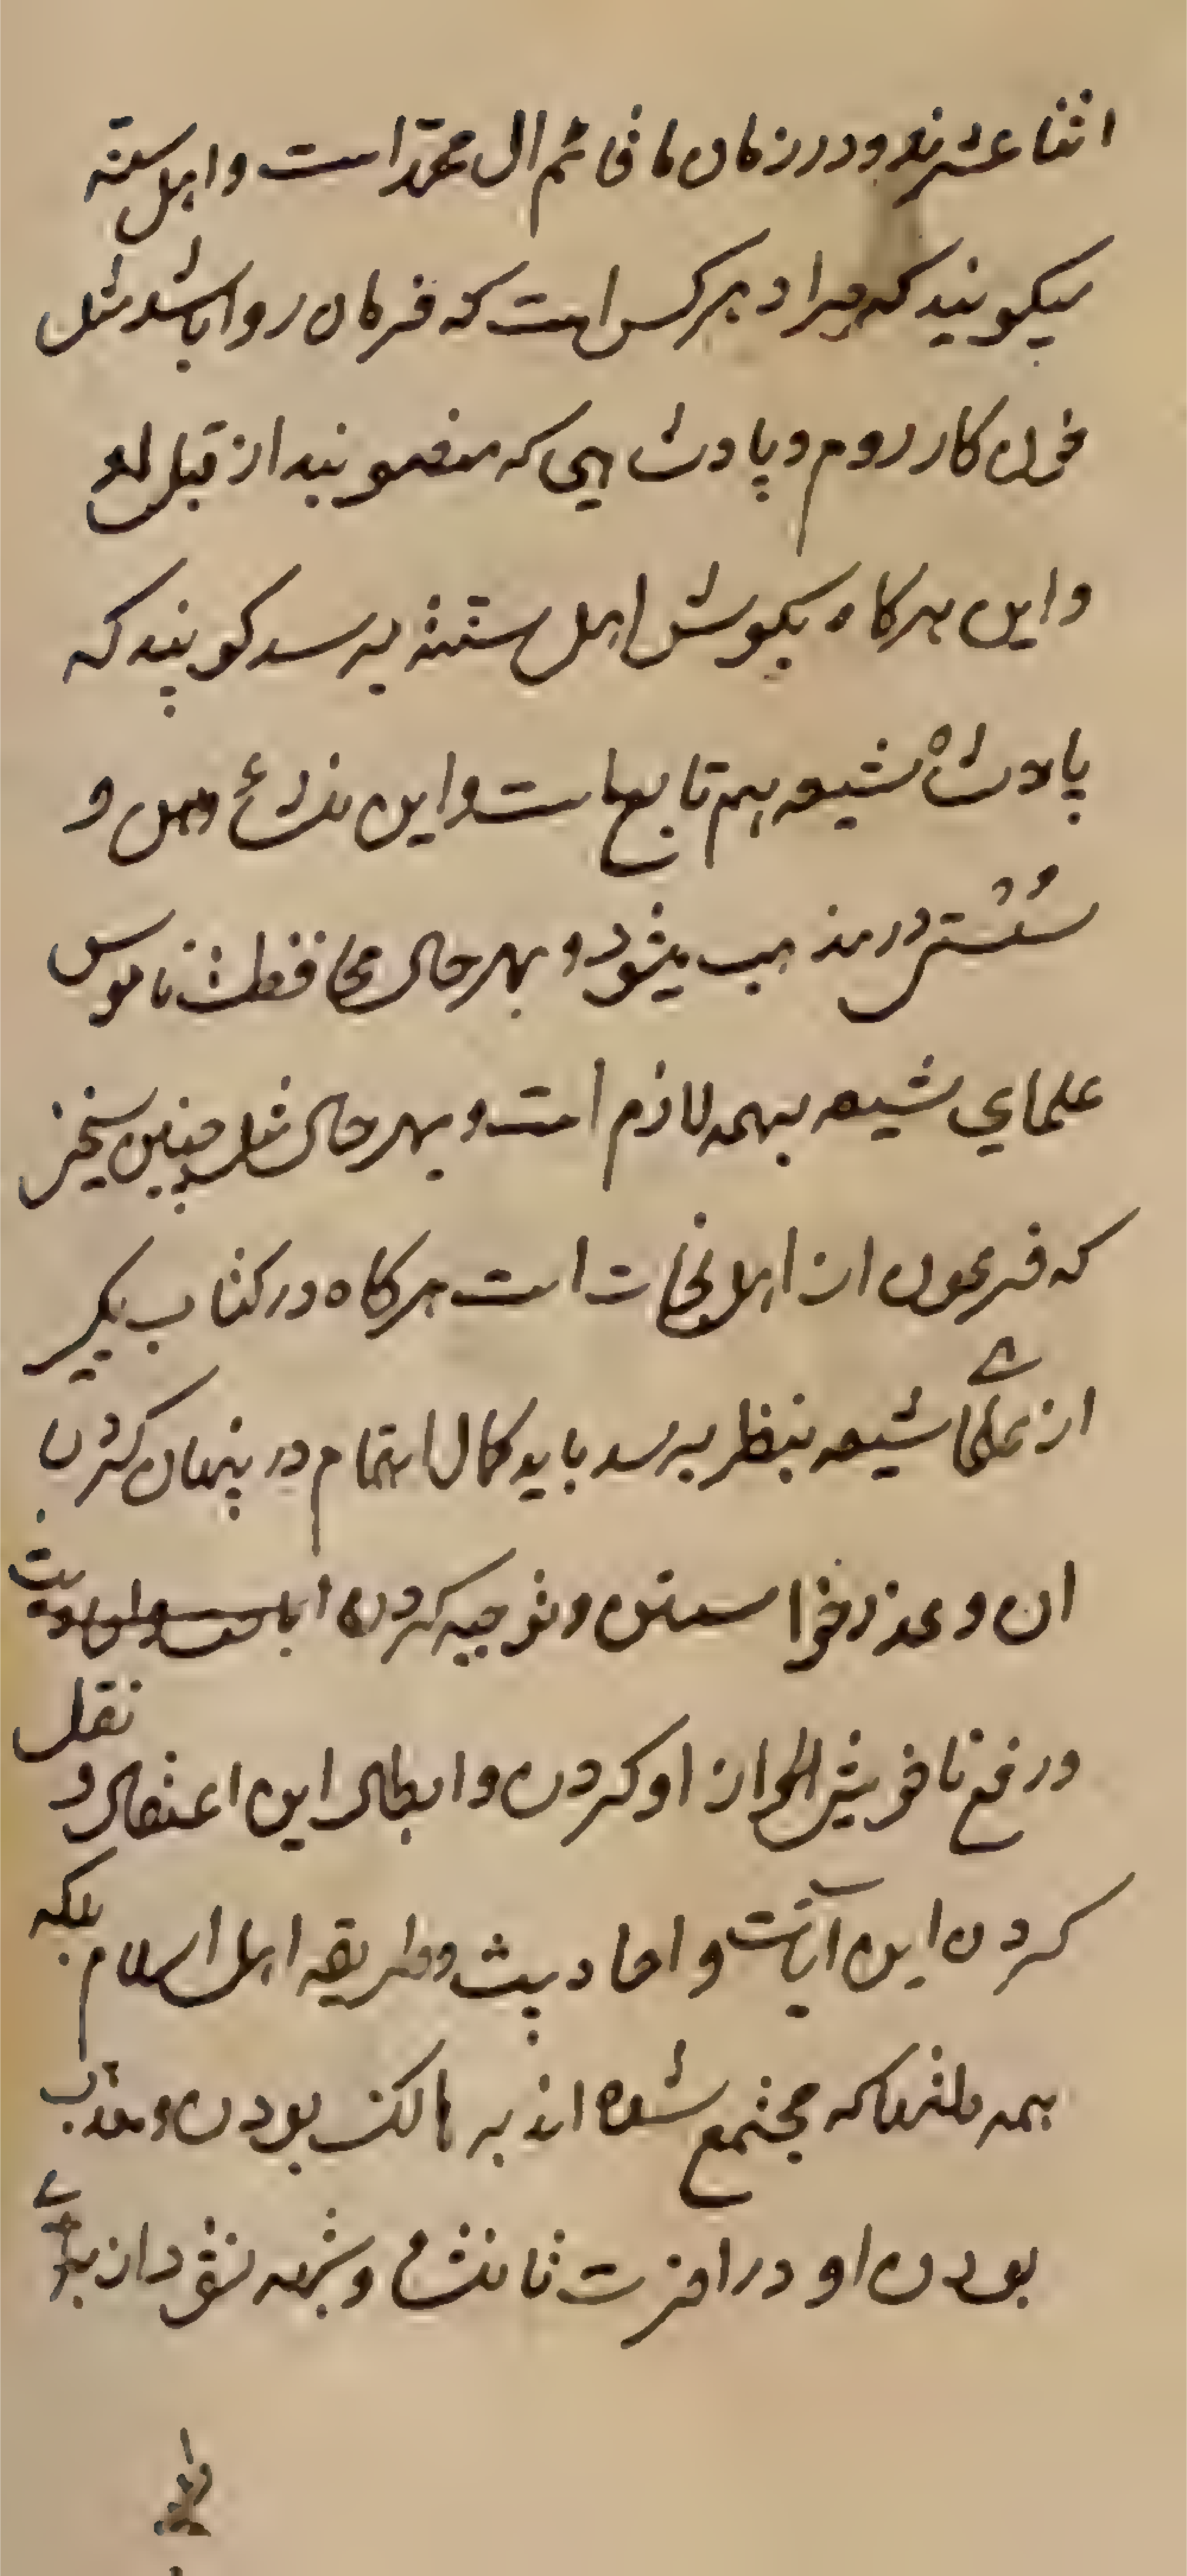 اثنا عشرند و در زمان ما قائم ال محمد است و اهل سنة
میکویند که مراد هر کس است که فرمان روا باشد مثل
خوان کار روم و پادشاهی که منصوبند از قبل او
و این هرکاه بکوش اهل سنة برسد کویند که
پادشاه شیعه هم تابع ماست و این و
سستی در مذهب میشود و بهر حال محافظت ناموس
علمای شیعه بهمه لازم است و بهر حال مثل چنین سخنی
که فرعون از اهل نجات است هرکاه در کتاب یکی
از علمای شیعه بنظر برسد باید کمال اهتمام در پنهان کردن
ان و عذر خواستن و توجیه کردن
و رفع نا خوشی از او کردن و ابطال این اعتقاد و نقل
کردن این آیات و احادیث و طریقه اهل اسلام بلکه
همه ملتها که مجتمع شده اند به هالک بودن و معذب
بودن او در اخرت تا نقش و شبهه نشود از برای